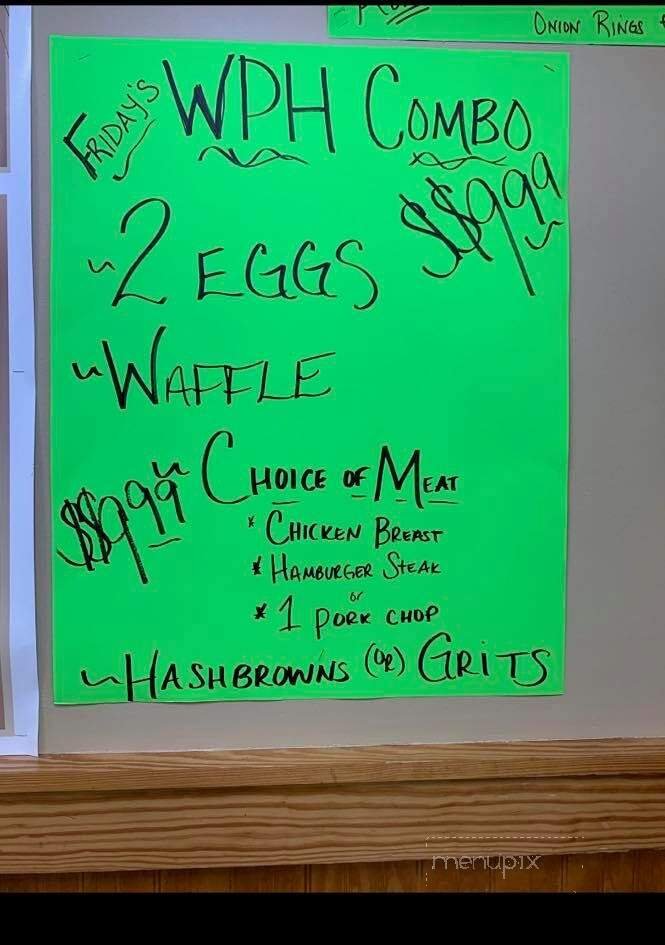 ONION RINGS
FRIDAY'S WPH COMBO
$$9.99
~2 EGGS
~WAFFLE
~CHOICE OF MEAT
$$9.99
* CHICKEN BREAST
* HAMBURGER STEAK
or
* 1 PORK CHOP
~HASHBROWNS (OR) GRITS
menupix